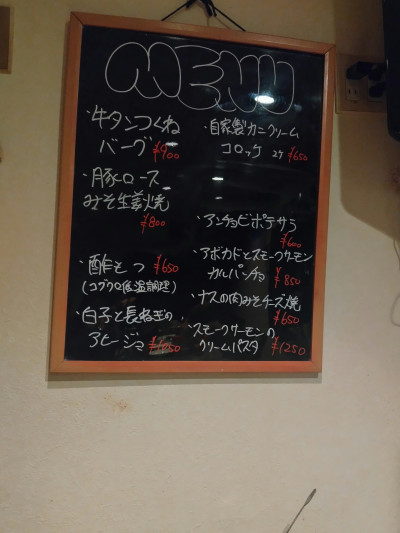 MENU
・牛タンつくね
バーグ ¥900
・豚ロース
みそ生姜焼
¥800
・酢もつ ¥650
(コブクロ低温調理)
・白子と長ねぎの
アヒージョ
・自家製カニクリーム
コロッケ 2ケ ¥650
・アンチョビポテサラ
¥600
・アボカドとスモークサーモン
カルパッチョ ¥850
・ナスの肉みそチーズ焼
¥650
・スモークサーモンの
クリームパスタ ¥1250